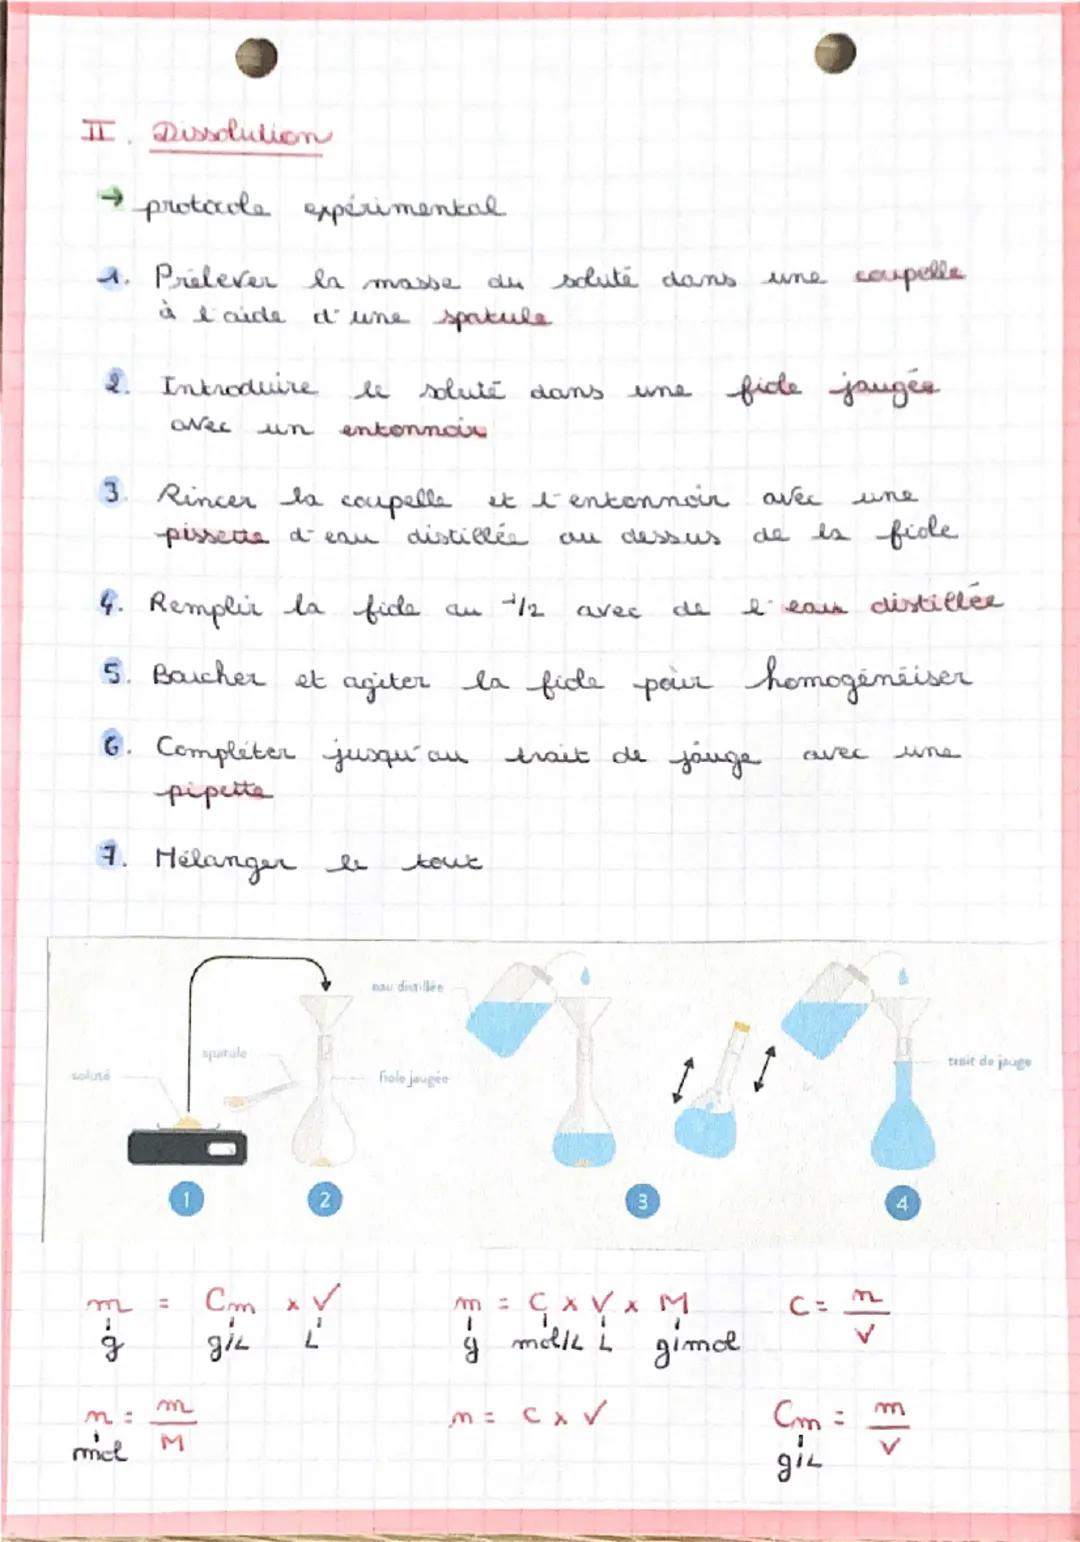 II. Dissolution
→ protocole expérimental
1. Prélever la masse du soluté dans une coupelle
à l'aide d'une spatule
2. Introduire le soluté dans une fiole jaugée
avec un entonnoir
3. Rincer la coupelle et l'entonnoir avec une
pissette d'eau distillée au dessus de la fiole
4. Remplir la fiole au 1/2 avec de l'eau distillée
5. Boucher et agiter la fiole pour homogénéiser
6. Compléter jusqu'au trait de jauge avec une
pipette
7. Mélanger le tout
eau distillée
spatule
soluté
fiole jaugée
trait de jauge
1 2 3 4
m = Cm × V
g g/L L
m = C × V × M
g mol/L L g/mol
C = n/V
n = m/M
mol
n = C × V
Cm = m/V
g/L